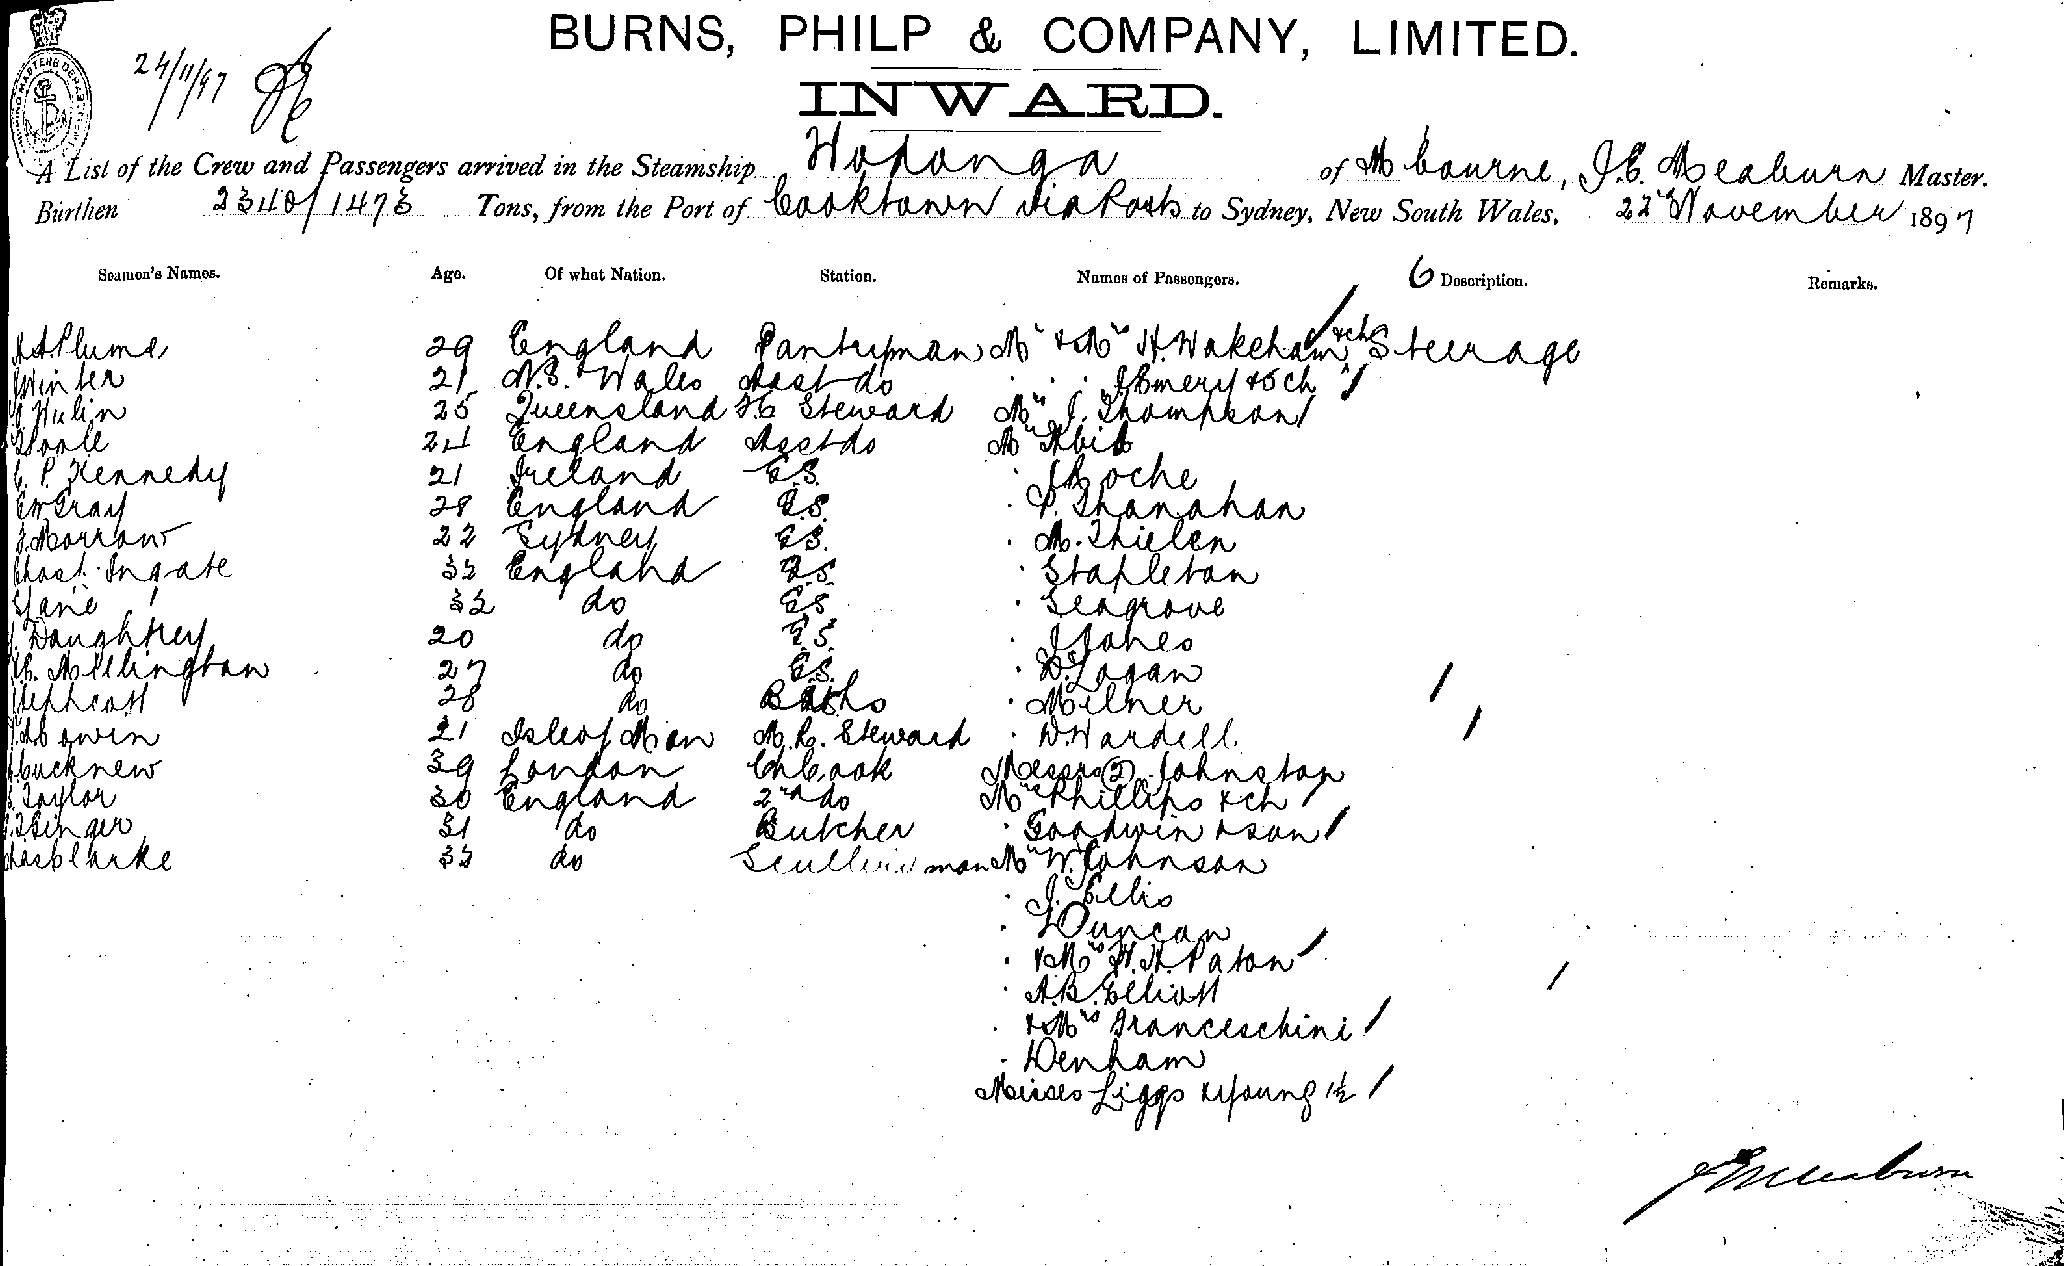 BURNS, PHILP & COMPANY, LIMITED.
24/11/97
INWARD.
A List of the Crew and Passengers arrived in the Steamship Wodonga of Mbourne, J.E. Meaburn Master.
Burthen 2340/1473 Tons, from the Port of Cooktown via Ports to Sydney, New South Wales, 22nd November 1897
Seamen's Names. Age. Of what Nation. Station. Names of Passengers. 6 Description. Remarks.
Plume 29 England Pantryman Mr & Mrs H. Wakeham & ch Steerage
Winter 21 N.S. Wales Asst do J Emery & 5 ch
Hulin 25 Queensland Steward Mrs J. Thompson
Poole 24 England Asst do Mr
P. Kennedy 21 Ireland G.S. Roche
Gray 28 England G.S. P. Shanahan
Morrow 22 Sydney G.S. M. Thielen
Chas. Ingate 32 England G.S. Stapleton
Jane 32 do G.S. Seagrove
Daughtrey 20 do G.S. J Jones
Millington 27 do G.S. D. Logan
Hephcott 28 do Baths Milner
Cowin 21 Isle of Man Steward W. Wardell
Bucknew 39 London Ch Cook Messrs (2) Johnston
Taylor 30 England 2nd do Mrs Phillips & ch
Singer 31 do Butcher Goodwin & son
Chas Clarke 32 do Scullery man Mr W. Johnson
J. Ellis
Duncan
& Mrs H. H. Paton
A.B. Elliott
& Mrs Franceschini
Denham
Misses Liggs & Young 1½
J E Meaburn